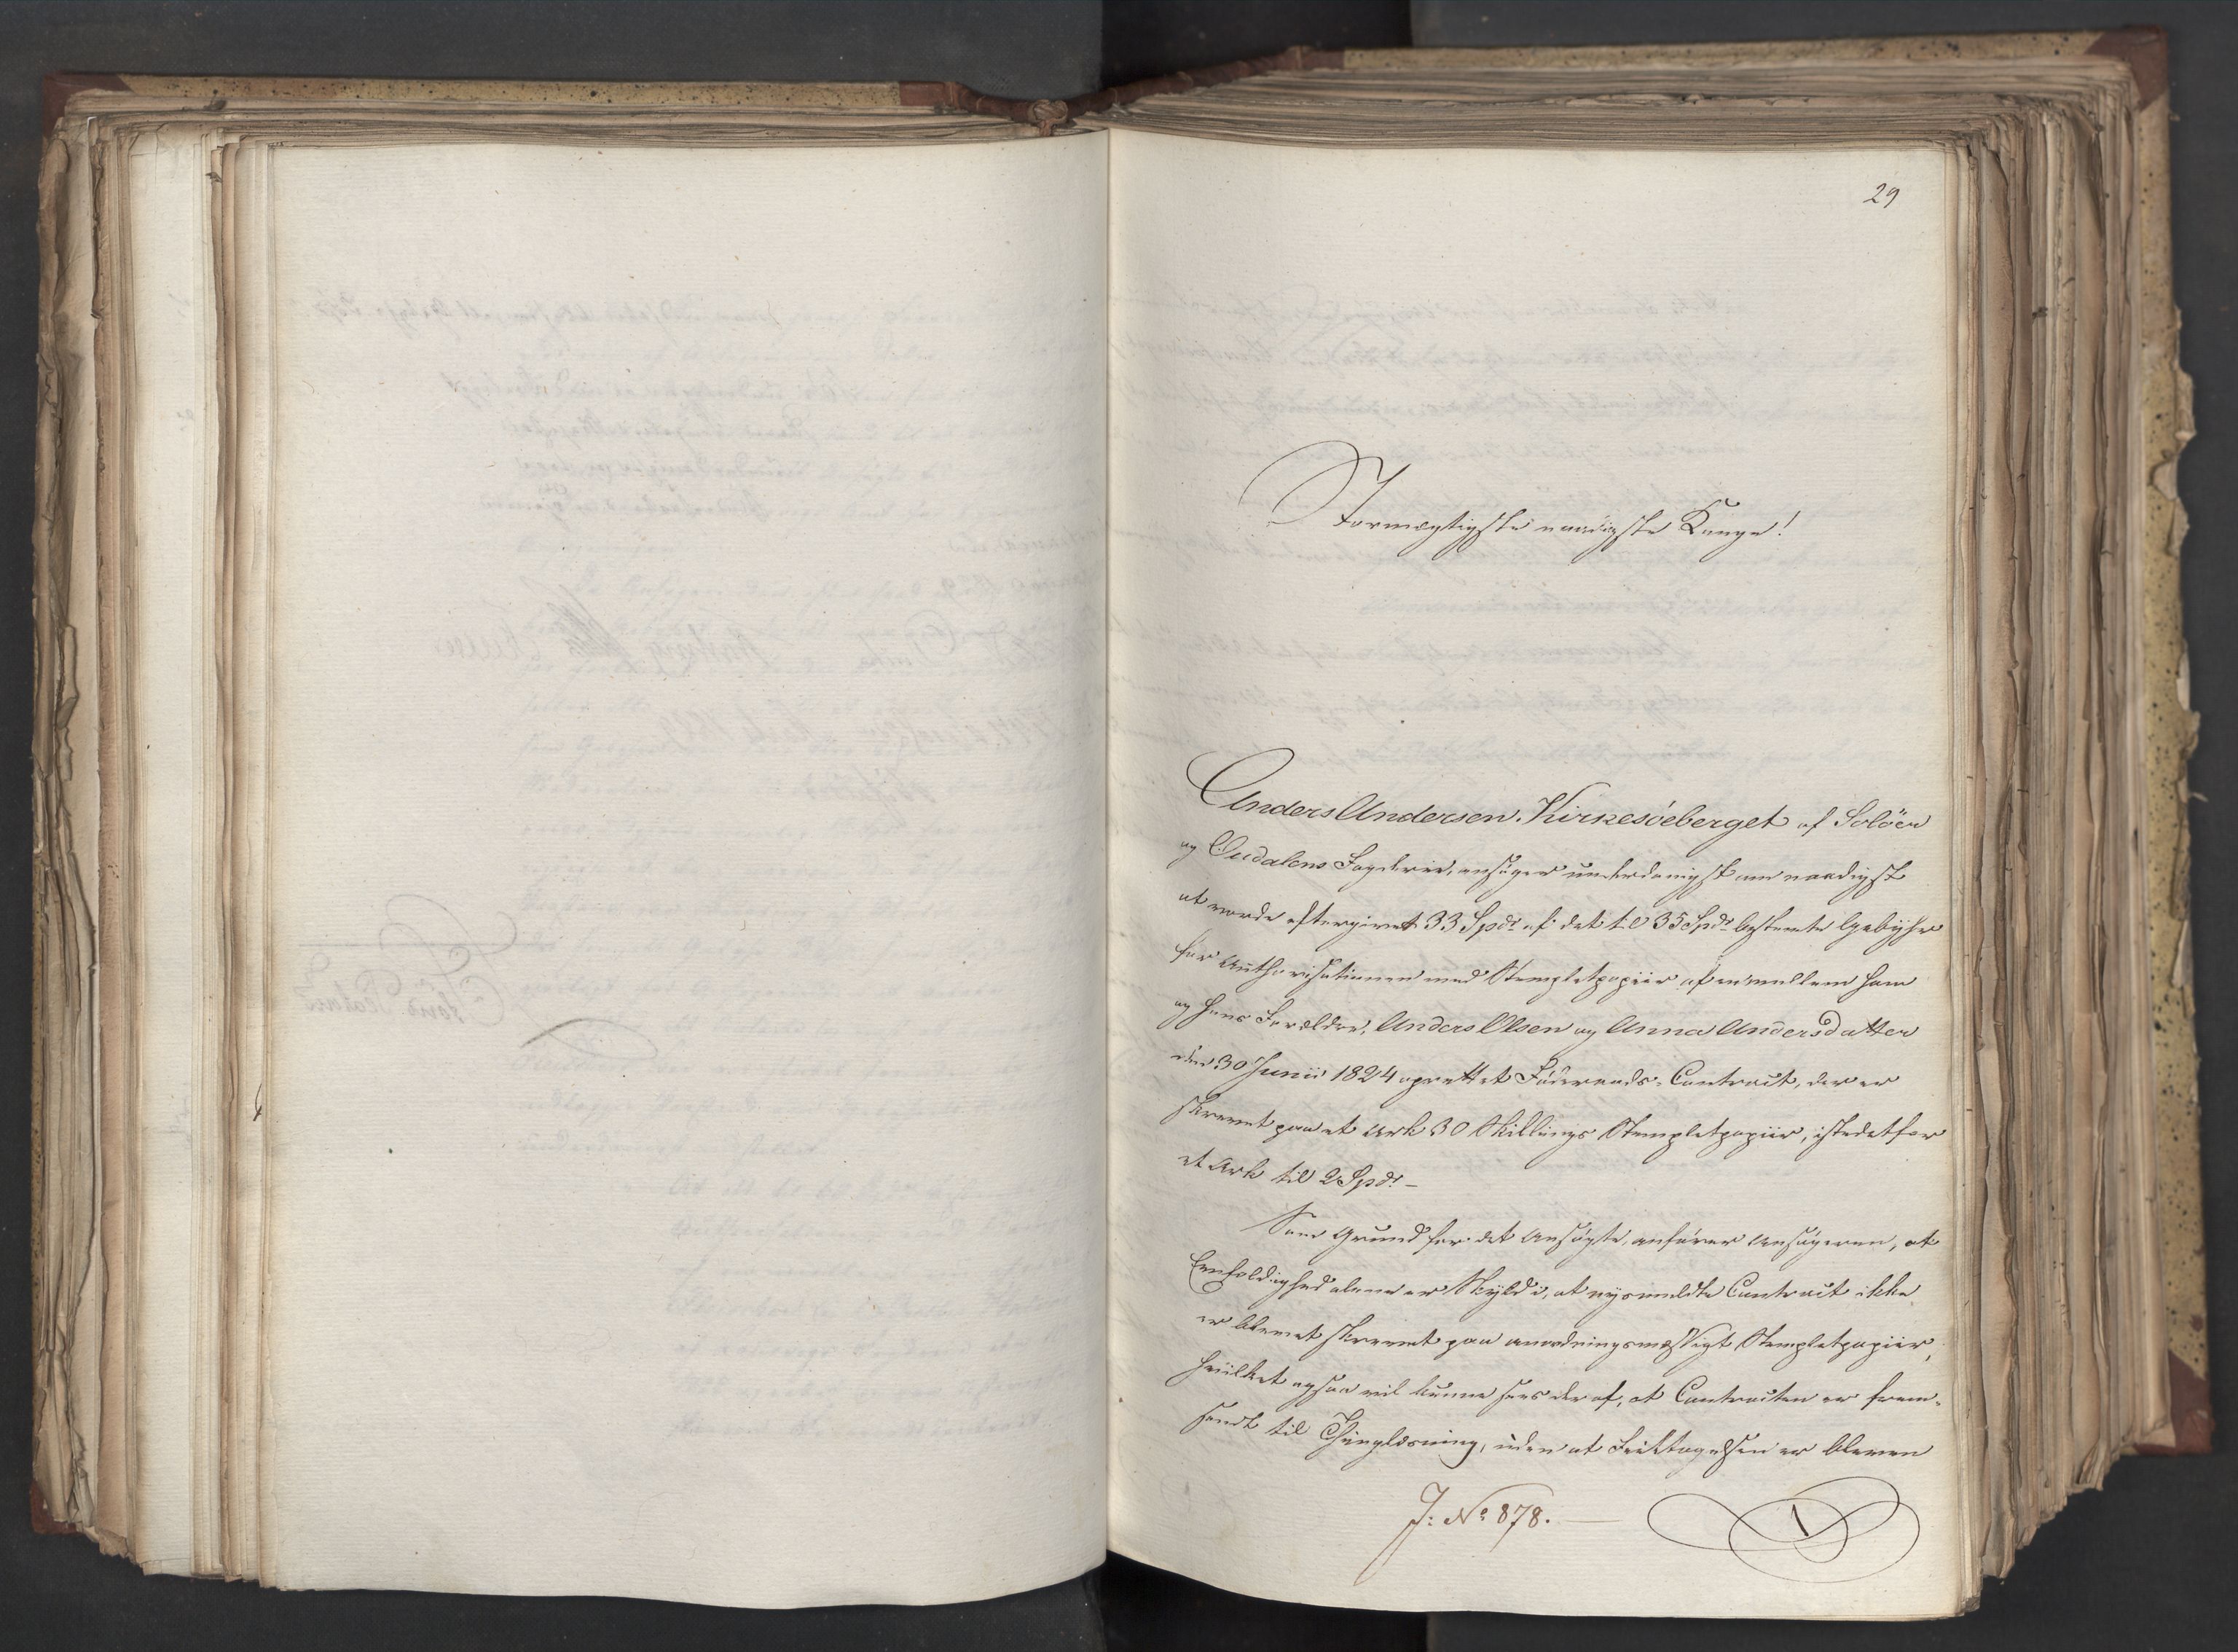 29
Stormægtigste naadigste Konge!
Anders Andersen Kirkesöeberget af Solöer
og Oudalens Fogderie, ansöger underdanigst om naadigst
at vorde eftergivet 33 Spdr. af det til 35 Spdr. bestemte Gebyhr
for Authorisationen med Stempletpapiir af en mellem ham
og hans Forældre, Anders Olsen og Anna Andersdatter
den 30 Junii 1824 oprettet Föderaads-Contract, der er
skrevet paa et Ark 30 Skillings Stempletpapiir, istedetfor
et Ark til 2 Spdr. –
Som Grund for det Ansögte, anförer Ansögeren, at
Eenfoldighed alene er Skyld i, at nysmeldte Contract ikke
er blevet skrevet paa anordningsmæssigt Stempletpapiir,
hvilket ogsaa vil kunne sees deraf, at Contracten er frem-
sendt til Thinglæsning, uden at Feiltagelsen er bleven
J: No 878. —